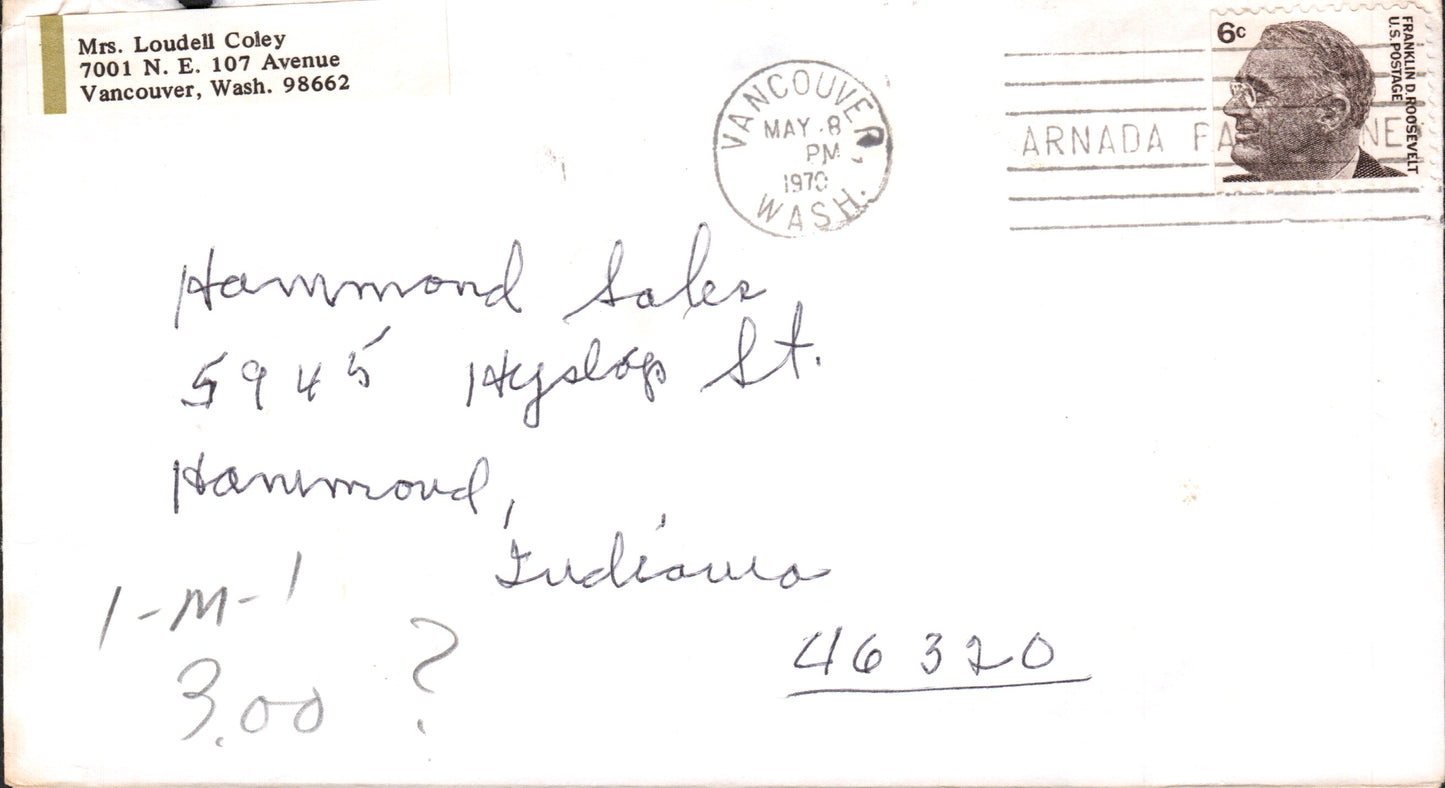 Mrs. Loudell Coley
7001 N. E. 107 Avenue
Vancouver, Wash. 98662
VANCOUVER,
MAY 8
PM
1970
WASH.
ARNADA
6c
FRANKLIN D. ROOSEVELT
U.S. POSTAGE
Hammond Sales
5945 Hyslop St.
Hammond,
Indiana
46320
1-M-1
3.00 ?